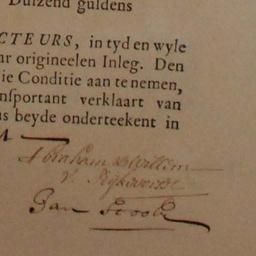 Duizend guldens
CTEURS, in tyd en wyle
ar origineelen Inleg. Den
ie Conditie aan te nemen,
nsportant verklaart van
s beyde onderteekent in
Abraham
V.
Jan